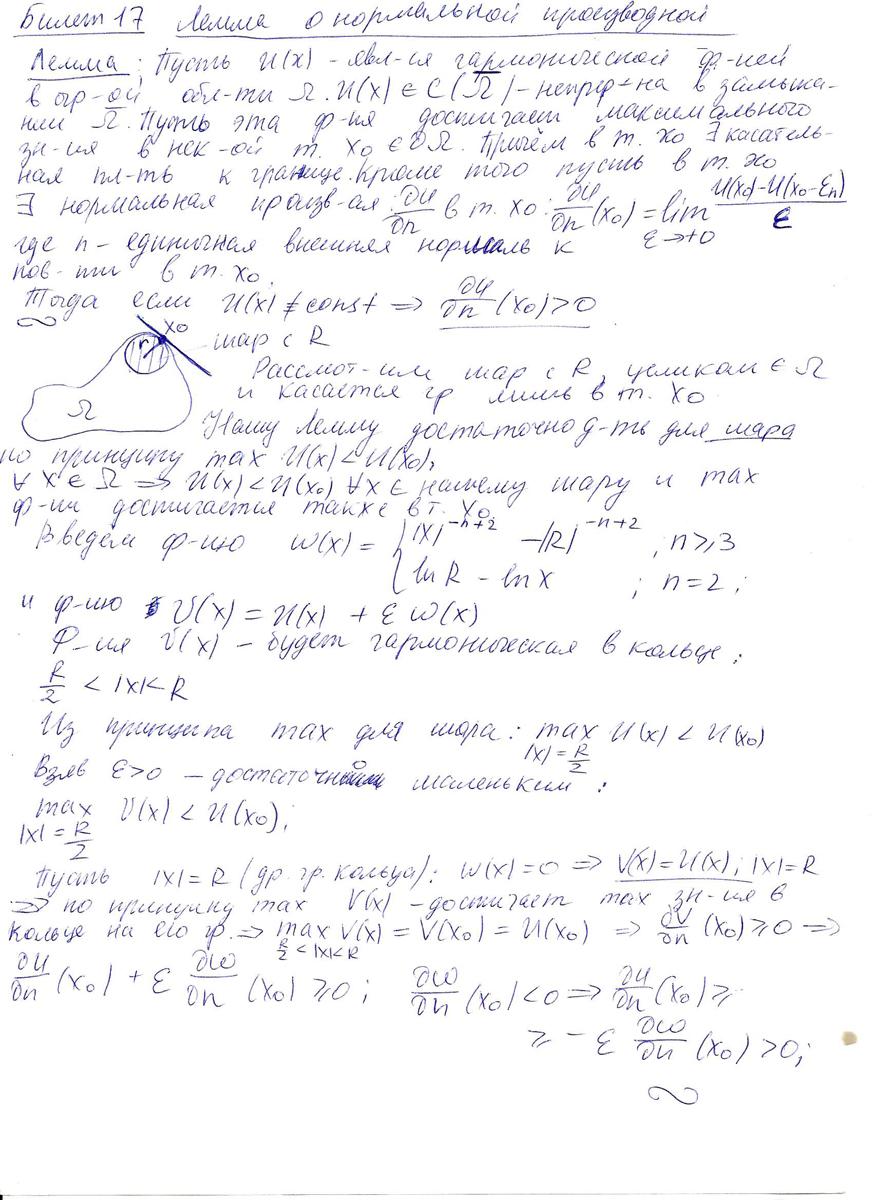 Билет 17 Лемма о нормальной производной
Лемма: Пусть U(x) - явл-ся гармонической ф-ией
в огр-ой обл-ти Ω. U(x) ∈ C(Ω̄) - непрер-на в замыка-
нии Ω. Пусть эта ф-ия достигает максимального
зн-ия в нек-ой т. x₀ ∈ ∂Ω. Причём в т. x₀ ∃ касатель-
ная пл-ть к границе. Кроме того пусть в т. x₀
∃ нормальная произв-ая: ∂U/∂n в т. x₀: ∂U/∂n (x₀) = lim_{ε→+0} (U(x₀)-U(x₀-εn))/ε
где n - единичная внешняя нормаль к
пов-ти в т. x₀.
Тогда если U(x) ≠ const ⇒ ∂U/∂n (x₀) > 0
x₀
r
шар с R
Ω
Рассмот-им шар с R, целиком ∈ Ω
и касается гр лишь в т. x₀
Нашу Лемму достаточно д-ть для шара
по принципу max U(x) < U(x₀),
∀ x ∈ Ω ⇒ U(x) < U(x₀) ∀x ∈ нашему шару и max
ф-ии достигается также в т. x₀
Введём ф-ию ω(x) = { |x|^{-n+2} - |R|^{-n+2} ; n ≥ 3
ln R - ln x ; n = 2;
и ф-ию V(x) = U(x) + ε ω(x)
Ф-ия V(x) - будет гармоническая в кольце:
R/2 < |x| < R
Из принципа max для шара: max_{|x|=R/2} U(x) < U(x₀)
Взяв ε>0 - достаточно маленьким:
max_{|x|=R/2} V(x) < U(x₀);
Пусть |x| = R (др. гр. кольца): ω(x) = 0 ⇒ V(x) = U(x); |x| = R
⇒ по принципу max V(x) - достигает max зн-ия в
кольце на его гр. ⇒ max_{R/2<|x|<R} V(x) = V(x₀) = U(x₀) ⇒ ∂V/∂n (x₀) ≥ 0 ⇒
∂U/∂n (x₀) + ε ∂ω/∂n (x₀) ≥ 0; ∂ω/∂n (x₀) < 0 ⇒ ∂U/∂n (x₀) ≥
≥ - ε ∂ω/∂n (x₀) > 0;